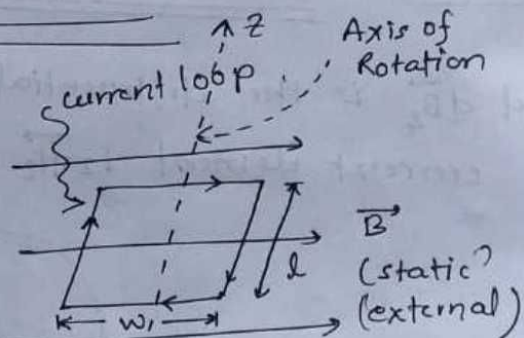 Z
Axis of
Rotation
current loop
l
B
(static)
(external)
W